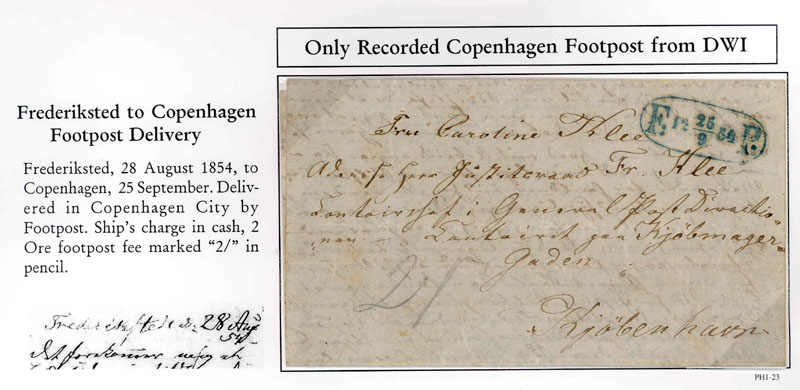 Only Recorded Copenhagen Footpost from DWI
Frederiksted to Copenhagen
Footpost Delivery
Frederiksted, 28 August 1854, to
Copenhagen, 25 September. Deliv-
ered in Copenhagen City by
Footpost. Ship's charge in cash, 2
Ore footpost fee marked "2/" in
pencil.
F: 12 25/9 54 P.
Frue Caroline Klee
Adresse Herr Justitsraad Fr. Klee
Contoirchef i General Post Direction-
nen - Contoiret paa Kjöbmager-
Gaden
2/
Kjöbenhavn
Frederiksted d. 28 Aug
54
Det forekommer mig at
PH1-23